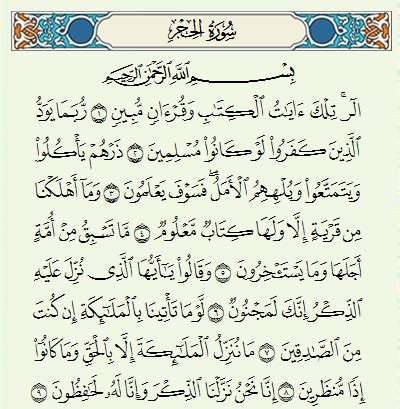 سُورَةُ الحِجْر
بِسْمِ ٱللَّهِ ٱلرَّحْمَٰنِ ٱلرَّحِيمِ
الٓر ۚ تِلْكَ ءَايَٰتُ ٱلْكِتَٰبِ وَقُرْءَانٍ مُّبِينٍ ١ رُّبَمَا يَوَدُّ
ٱلَّذِينَ كَفَرُوا۟ لَوْ كَانُوا۟ مُسْلِمِينَ ٢ ذَرْهُمْ يَأْكُلُوا۟
وَيَتَمَتَّعُوا۟ وَيُلْهِهِمُ ٱلْأَمَلُ ۖ فَسَوْفَ يَعْلَمُونَ ٣ وَمَآ أَهْلَكْنَا
مِن قَرْيَةٍ إِلَّا وَلَهَا كِتَابٌ مَّعْلُومٌ ٤ مَّا تَسْبِقُ مِنْ أُمَّةٍ
أَجَلَهَا وَمَا يَسْتَـْٔخِرُونَ ٥ وَقَالُوا۟ يَٰٓأَيُّهَا ٱلَّذِى نُزِّلَ عَلَيْهِ
ٱلذِّكْرُ إِنَّكَ لَمَجْنُونٌ ٦ لَّوْ مَا تَأْتِينَا بِٱلْمَلَٰٓئِكَةِ إِن كُنتَ
مِنَ ٱلصَّٰدِقِينَ ٧ مَا نُنَزِّلُ ٱلْمَلَٰٓئِكَةَ إِلَّا بِٱلْحَقِّ وَمَا كَانُوٓا۟
إِذًا مُّنظَرِينَ ٨ إِنَّا نَحْنُ نَزَّلْنَا ٱلذِّكْرَ وَإِنَّا لَهُۥ لَحَٰفِظُونَ ٩